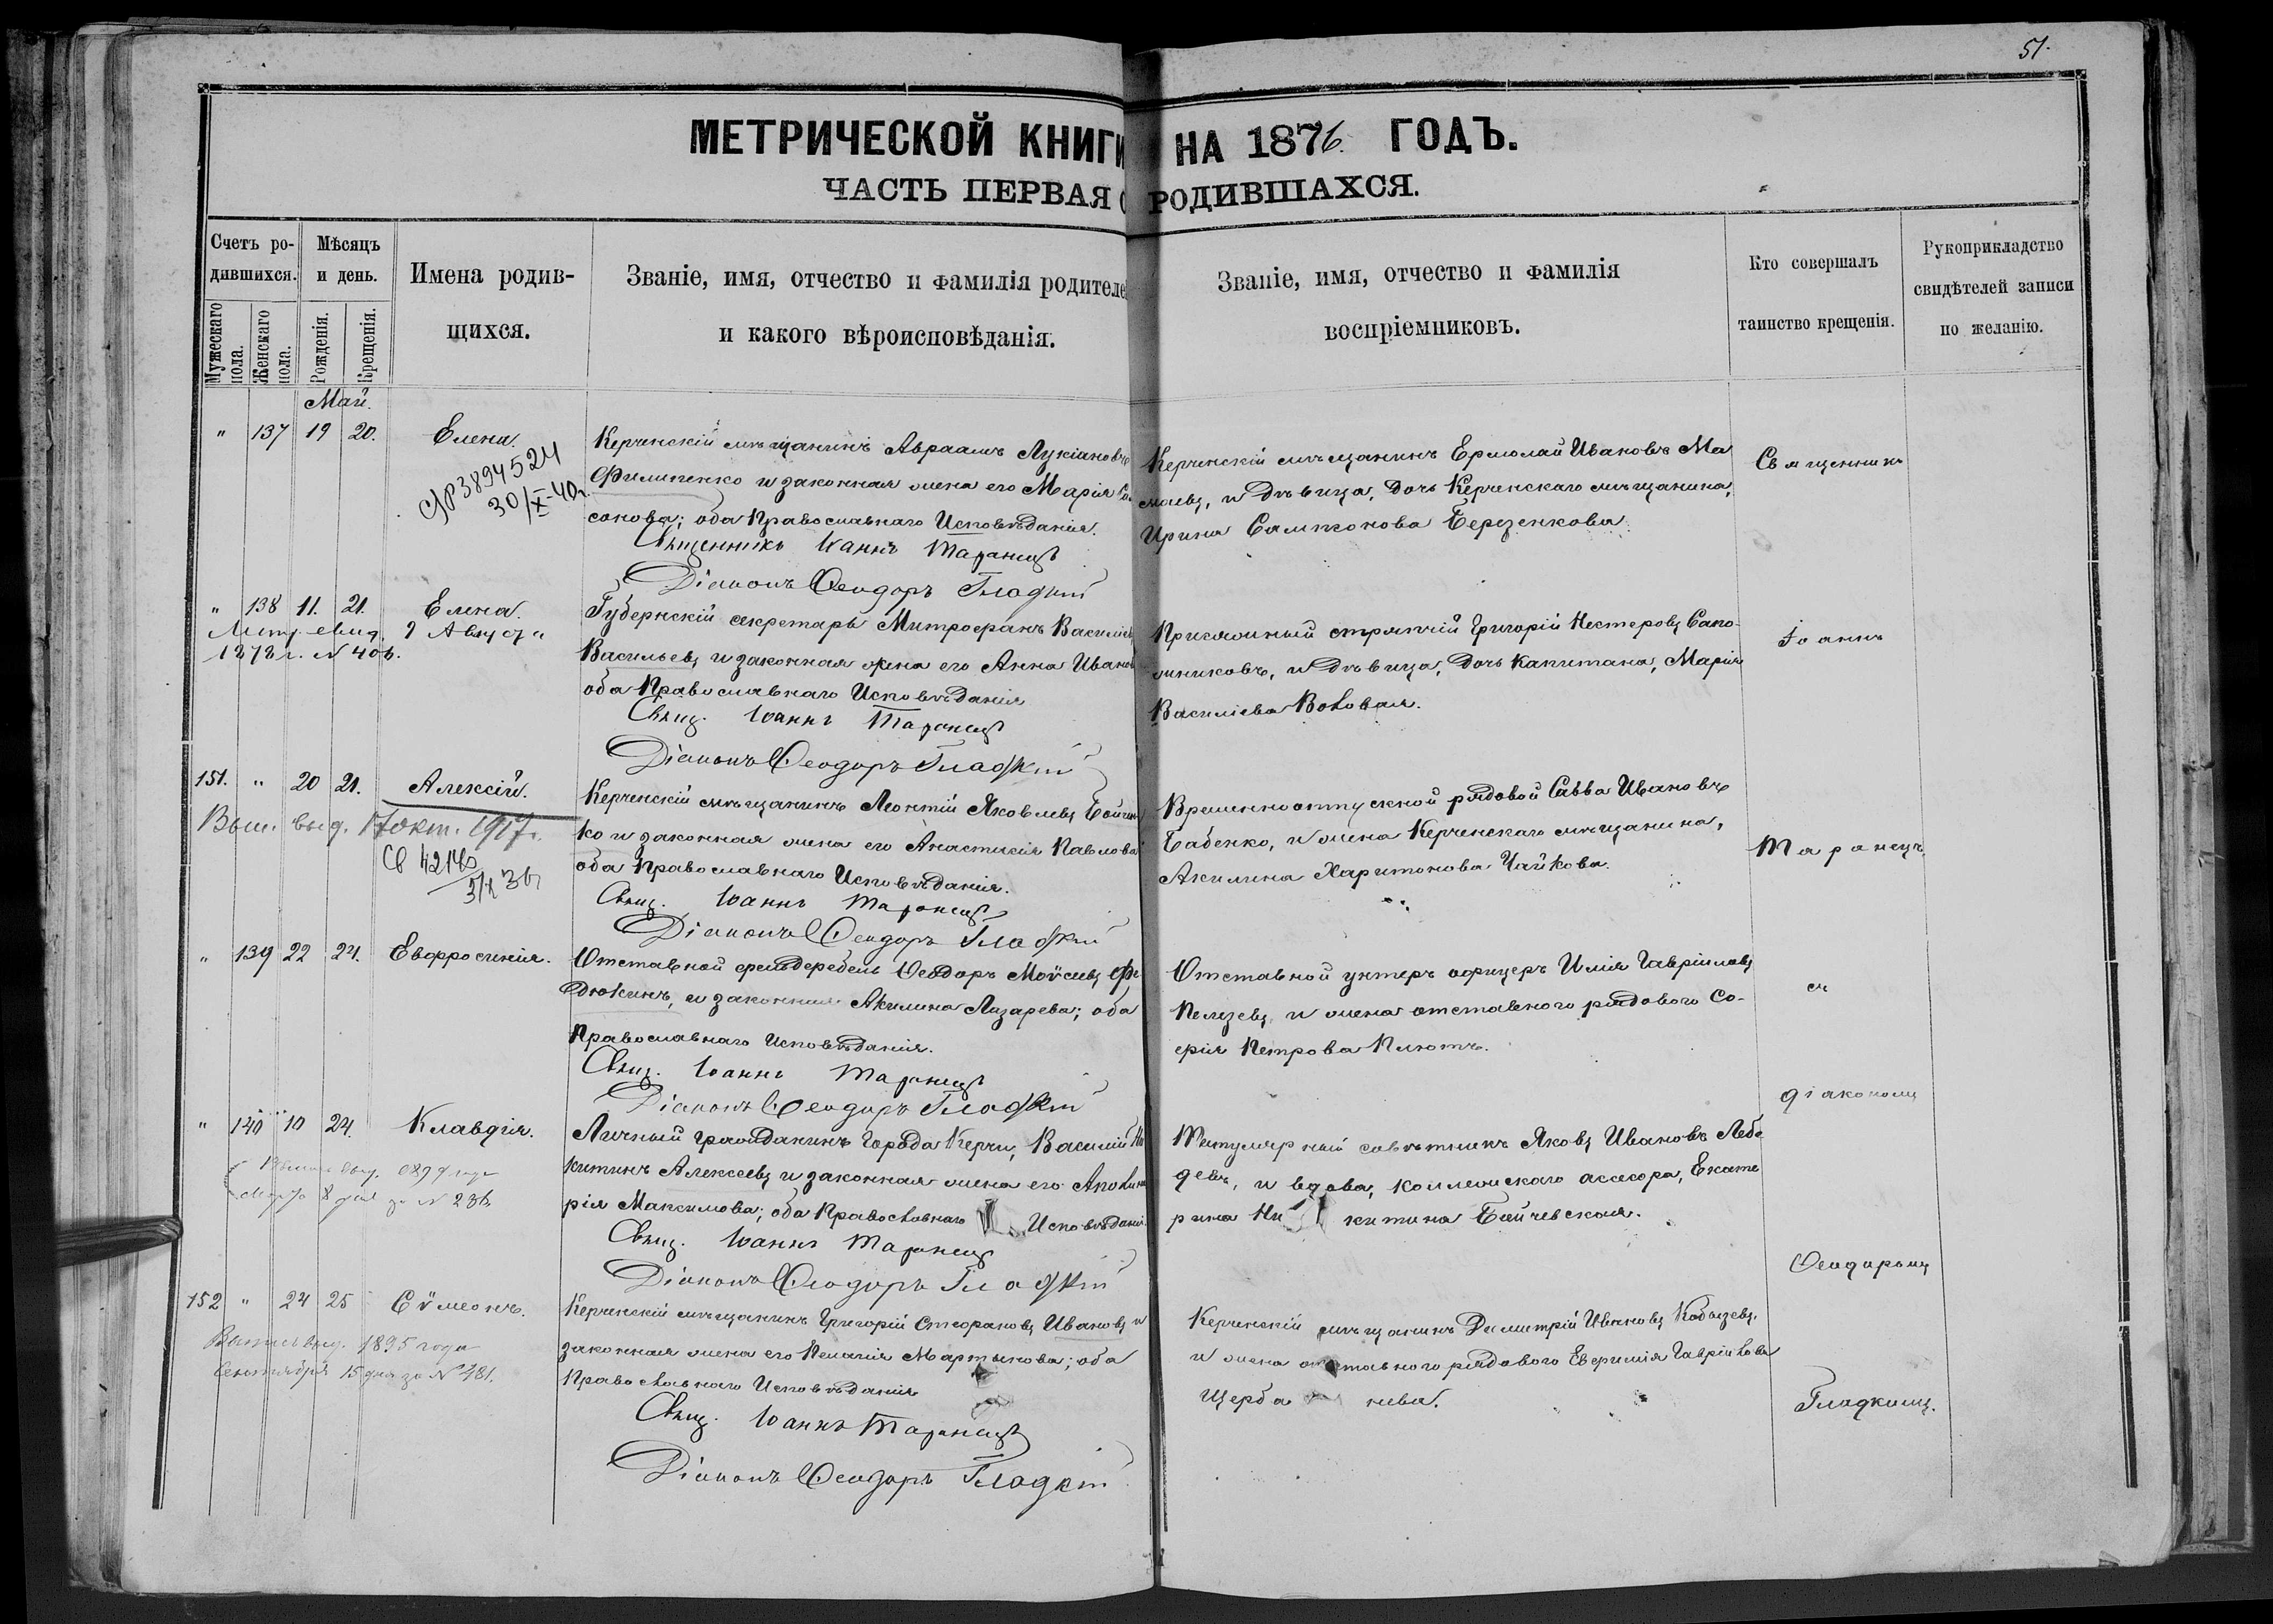 51.
МЕТРИЧЕСКОЙ КНИГИ НА 1876. ГОДЪ.
ЧАСТЬ ПЕРВАЯ О РОДИВШАХСЯ.
Счетъ ро-
дившихся.
Мужескаго пола.
Женскаго пола.
Мѣсяцъ
и день.
Рожденія.
Крещенія.
Имена родив-
щихся.
Званіе, имя, отчество и фамилія родителе
и какого вѣроисповѣданія.
Званіе, имя, отчество и фамилія
воспріемниковъ.
Кто совершалъ
таинство крещенія.
Рукоприкладство
свидѣтелей записи
по желанію.
Май.
" 137 19 20. Елена.
3894524
30/X-40г.
Керченскій мѣщанинъ Авраамъ Лукіановъ
Филипенко и законная жена его Марія Сам
сонова; оба Православнаго Исповѣданія.
Священникъ Іоаннъ Таранецъ
Діаконъ Ѳеодоръ Гладкій
Керченскій мѣщанинъ Ермолай Ивановъ Ма
и дѣвица, дочь Керченскаго мѣщанина,
Ирина Сампсонова Березенкова.
Священникъ
" 138 11. 21. Елена.
Метр. выд. 9 Августа
1878 г. N 406.
Губернскій секретарь Митрофанъ Василіевъ
Васильевъ и законная жена его Анна Иванов
оба Православнаго Исповѣданія
Свящ. Іоаннъ Таранецъ
Діаконъ Ѳеодоръ Гладкій
Присяжный стряпчій Григорій Нестеровъ Сапо-
жниковъ, и дѣвица, дочь Капитана, Марія
Василіева Воловая.
Іоаннъ
151. " 20 21. Алексій.
Вып. выд. 17 окт. 1917 г.
Керченскій мѣщанинъ Леонтій Яковлевъ Бойчен
ко и законная жена его Анастасія Павлова
оба Православнаго Исповѣданія.
Свящ. Іоаннъ Таранецъ
Діаконъ Ѳеодоръ Гладкій
Временноотпускной рядовой Савва Ивановъ
Бабенко, и жена Керченскаго мѣщанина,
Акилина Харитонова Чайкова.
Таранецъ
" 139 22 24. Евфросинія.
Отставной фельдфебель Ѳеодоръ Моѵсеевъ Фе
дюкинъ, и законная Акилина Лазарева; оба
Православнаго Исповѣданія.
Свящ. Іоаннъ Таранецъ
Діаконъ Ѳеодоръ Гладкій
Отставной унтеръ офицеръ Илія Гавріиловъ
и жена отставнаго рядоваго Со-
ѳія Петрова Плютъ.
съ
діакономъ
" 140 10 24. Клавдія.
выд. 1899 года
Марта 8 дня за N 236
Личный гражданинъ города Керчи, Василій Ни
китинъ Алексеевъ и законная жена его Аполина
рія Максимова; оба Православнаго Исповѣданія
Свящ. Іоаннъ Таранецъ
Діаконъ Ѳеодоръ Гладкій
Титулярный совѣтникъ Яковъ Ивановъ Лебе
девъ, и вдова, коллежскаго ассесора, Екате
рина Ни китина Бойчевская.
Ѳеодоромъ
152 " 24 25 Сѵмеонъ.
Выпись выд. 1895 года
Сентября 15 дня за N 481.
Керченскій мѣщанинъ Григорій Стефановъ Ивановъ и
законная жена его Пелагія Мартынова; оба
Православнаго Исповѣданія
Свящ. Іоаннъ Таранецъ
Діаконъ Ѳеодоръ Гладкій
Керченскій мѣщанинъ Димитрій Ивановъ Кобызевъ,
и жена отставнаго рядоваго Евфимія Гавріилова
Щерба нева.
Гладкимъ.